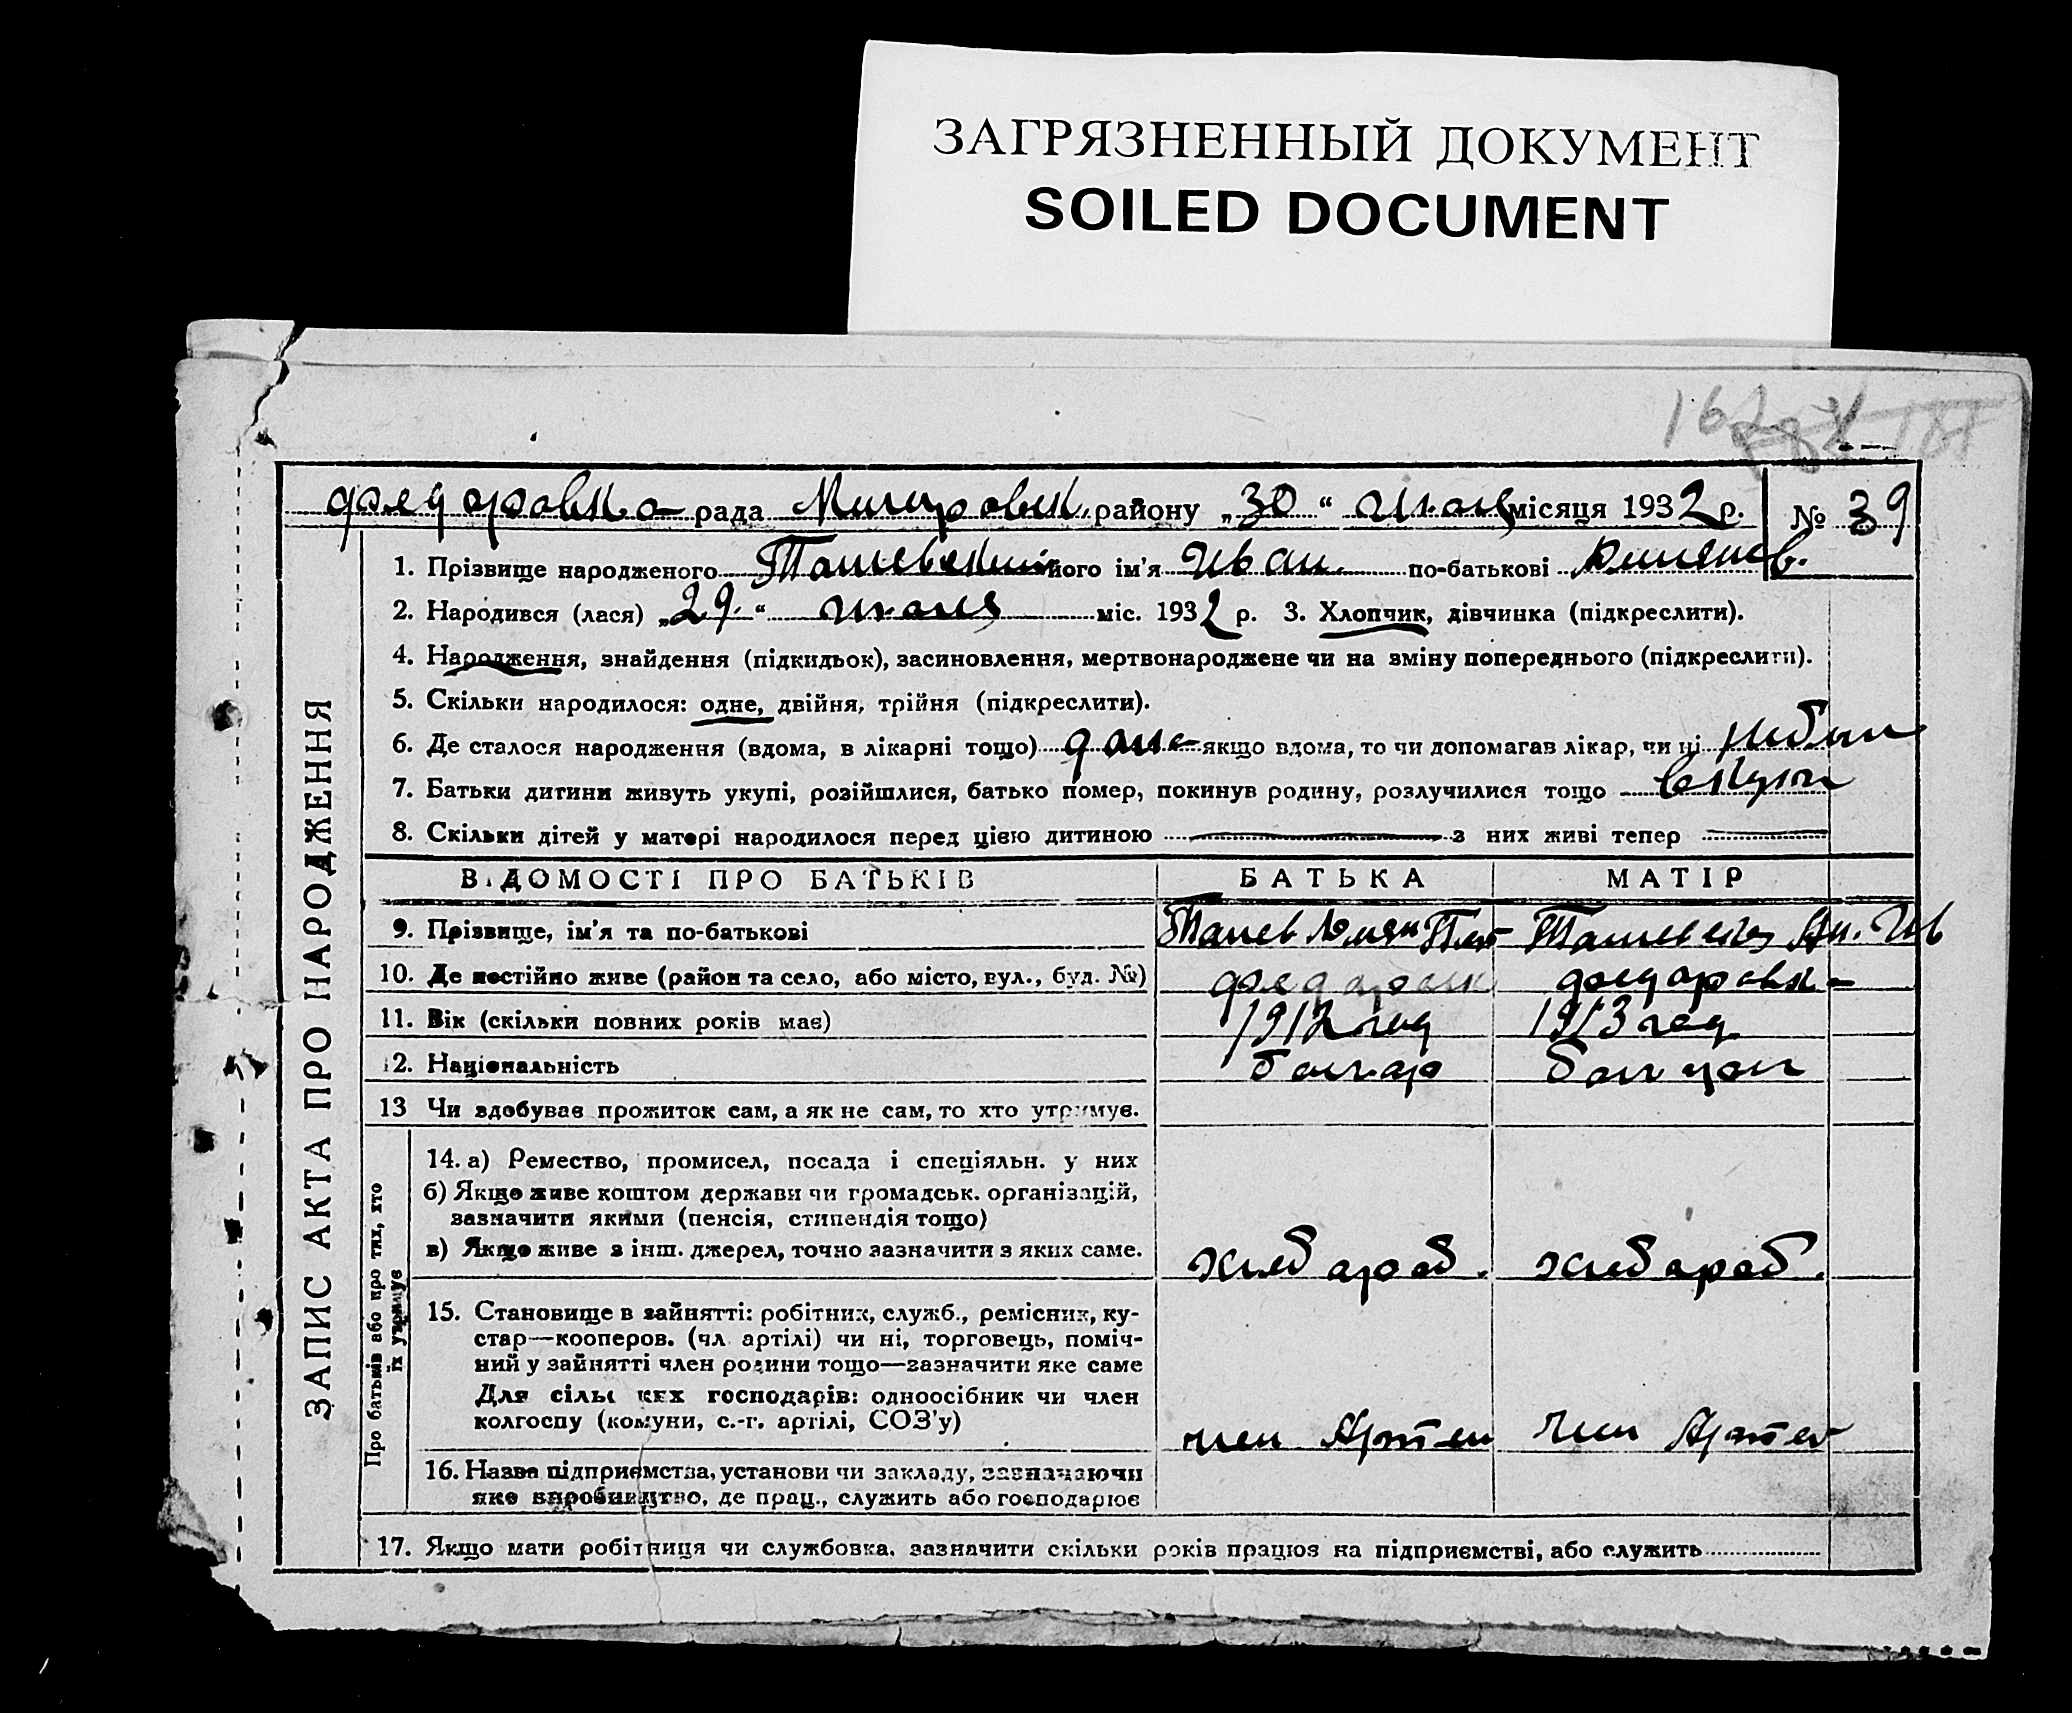 ЗАГРЯЗНЕННЫЙ ДОКУМЕНТ
SOILED DOCUMENT
рада району „30“ місяця 1932 р. № 39
1. Прізвище народженого його ім'я Иван по-батькові
2. Народився (лася) „29.“ июля міс. 1932 р. 3. Хлопчик, дівчинка (підкреслити).
4. Народження, знайдення (підкидьок), засиновлення, мертвонароджене чи на зміну попереднього (підкреслити).
5. Скільки народилося: одне, двійня, трійня (підкреслити).
6. Де сталося народження (вдома, в лікарні тощо) дома якщо вдома, то чи допомагав лікар, чи ні
7. Батьки дитини живуть укупі, розійшлися, батько помер, покинув родину, розлучилися тощо вкупи
8. Скільки дітей у матері народилося перед цією дитиною з них живі тепер
ВІДОМОСТІ ПРО БАТЬКІВ БАТЬКА МАТІР
9. Прізвище, ім'я та по-батькові
10. Де постійно живе (район та село, або місто, вул., буд. №)
11. Вік (скільки повних років має) 1912 год 1913 год
12. Національність болгар
13 Чи здобував прожиток сам, а як не сам, то хто утримує.
14. а) Ремество, промисел, посада і спеціяльн. у них
б) Якщо живе коштом держави чи громадськ. організацій,
зазначити якими (пенсія, стипендія тощо)
в) Якщо живе з інш. джерел, точно зазначити з яких саме. хлебороб. хлебороб.
15. Становище в зайнятті: робітник, служб., ремісник, ку-
стар—кооперов. (чл. артілі) чи ні, торговець, поміч-
ний у зайнятті член родини тощо—зазначити яке саме
Для сільських господарів: одноосібник чи член
колгоспу (комуни, с.-г. артілі, СОЗ'у) член Артел член Артел
16. Назва підприємства, установи чи закладу, зазначаючи
яке виробництво, де прац., служить або господарює
17. Якщо мати робітниця чи службовка, зазначити скільки років працює на підприємстві, або служить
ЗАПИС АКТА ПРО НАРОДЖЕННЯ
Про батьків або про тих, хто
їх утримує